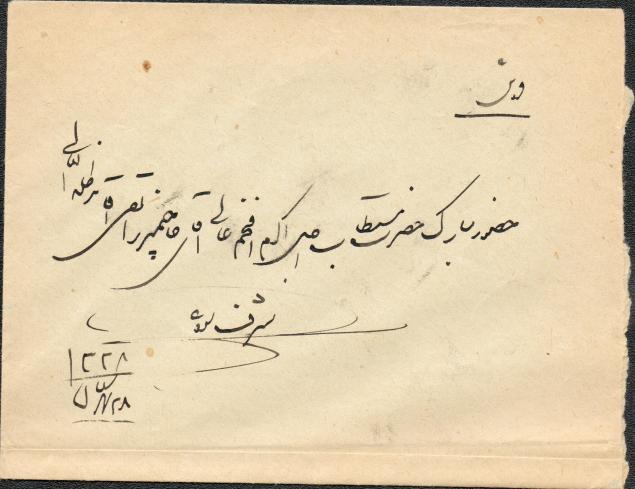 حضور مبارک حضرت مستطاب اجل اکرم افخم عالی آقای حاجی میرزا تقی آقا مدظله العالی
مشرف شود
۱۳۲۸
۲۸